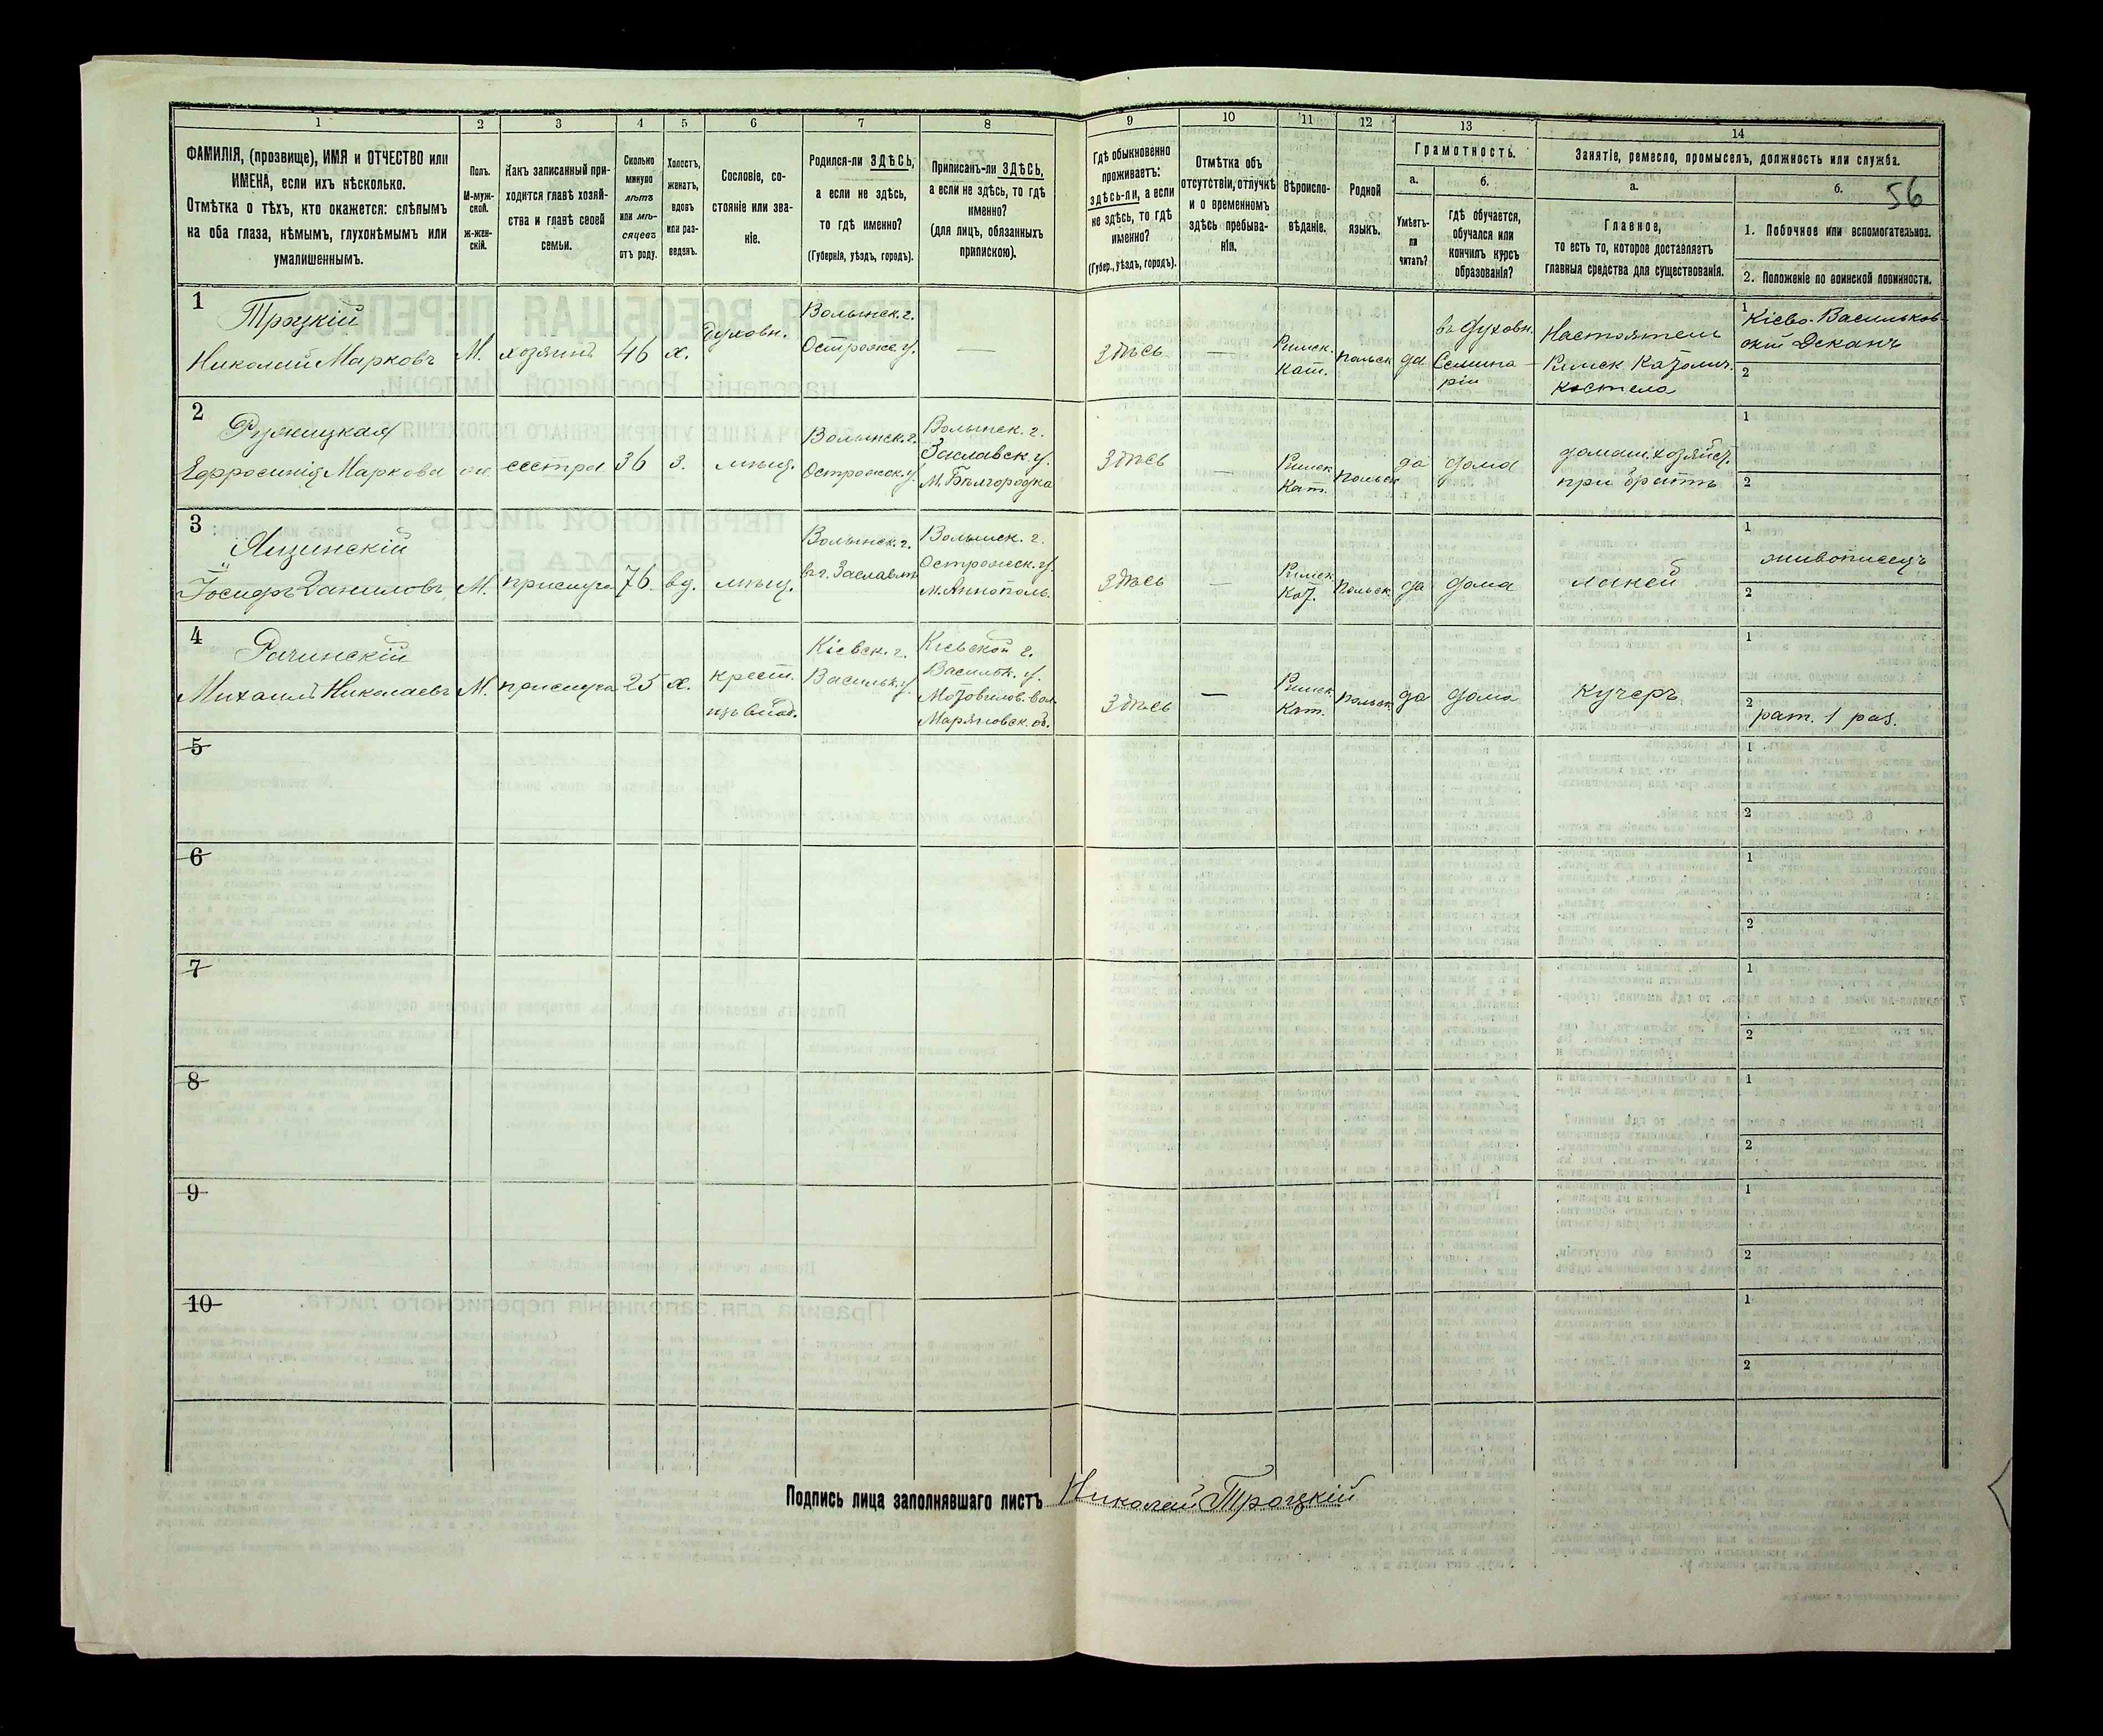 1 2 3 4 5 6 7 8 9 10 11 12 13 14
ФАМИЛІЯ, (прозвище), ИМЯ и ОТЧЕСТВО или
ИМЕНА, если ихъ нѣсколько.
Отмѣтка о тѣхъ, кто окажется: слѣпымъ
на оба глаза, нѣмымъ, глухонѣмымъ или
умалишеннымъ.
Полъ.
М-муж-
ской.
ж-жен-
скій.
Какъ записанный при-
ходится главѣ хозяй-
ства и главѣ своей
семьи.
Сколько
минуло
лѣтъ
или мѣ-
сяцевъ
отъ роду.
Холостъ,
женатъ,
вдовъ
или раз-
веденъ.
Сословіе, со-
стояніе или зва-
ніе.
Родился-ли ЗДѢСЬ,
а если не здѣсь,
то гдѣ именно?
(Губернія, уѣздъ, городъ).
Приписанъ-ли ЗДѢСЬ,
а если не здѣсь, то гдѣ
именно?
(для лицъ, обязанныхъ
припискою).
Гдѣ обыкновенно
проживаетъ:
здѣсь-ли, а если
не здѣсь, то гдѣ
именно?
(Губер., уѣздъ, городъ).
Отмѣтка объ
отсутствіи, отлучкѣ
и о временномъ
здѣсь пребыва-
ніи.
Вѣроиспо-
вѣданіе.
Родной
языкъ.
Грамотность.
а.
Умѣетъ-
ли
читать?
б.
гдѣ обучается,
обучался или
кончилъ курсъ
образованія?
Занятіе, ремесло, промыселъ, должность или служба.
а.
Главное,
то есть то, которое доставляетъ
главныя средства для существованія.
б.
56
1. Побочное или вспомогательное.
2. Положеніе по воинской повинности.
1
Троцкій
Николай Марковъ
М.
хозяинъ
46
х.
Духовн.
Волынск. г.
Острожс. у.
—
здѣсь
—
Римск.
Кат.
польск
да
въ Духовн.
Семина-
ріи
Настоятель
Римск. Католич.
костела
1
Кіево-Васильков-
скій Деканъ
2
2
Ружицкая
Ефросинія Маркова
ж.
сестра
36
з.
мѣщ.
Волынск. г.
Острожск. у.
Волынск. г.
Заславск. у.
М. Бѣлгородка
здѣсь
—
Римск.
Кат.
польск
да
дома
домаш. хозяйст.
при братѣ
1
2
3
Іосифъ Даниловъ
М.
прислуга
76
вд.
мѣщ.
Волынск. г.
въ г. Заславлѣ
Волынск. г.
Острожск. у.
м. Аннополь.
здѣсь
—
Римск.
Кат.
польск.
да
дома
лакей
1
живописецъ
2
4
Рачинскій
Михаилъ Николаевъ
М.
прислуга
25
х.
крест.
Кіевск. г.
Васильк. у.
Кіевской г.
Васильк. у.
Мотовилов. вол.
Маряновск. об.
здѣсь
—
Римск.
Кат.
польск.
да
дома
кучеръ
1
2
рат. 1 раз.
5
1
2
6
1
2
7
1
2
8
1
2
9
1
2
10
1
2
Подпись лица заполнявшаго листъ Николай Троцкій